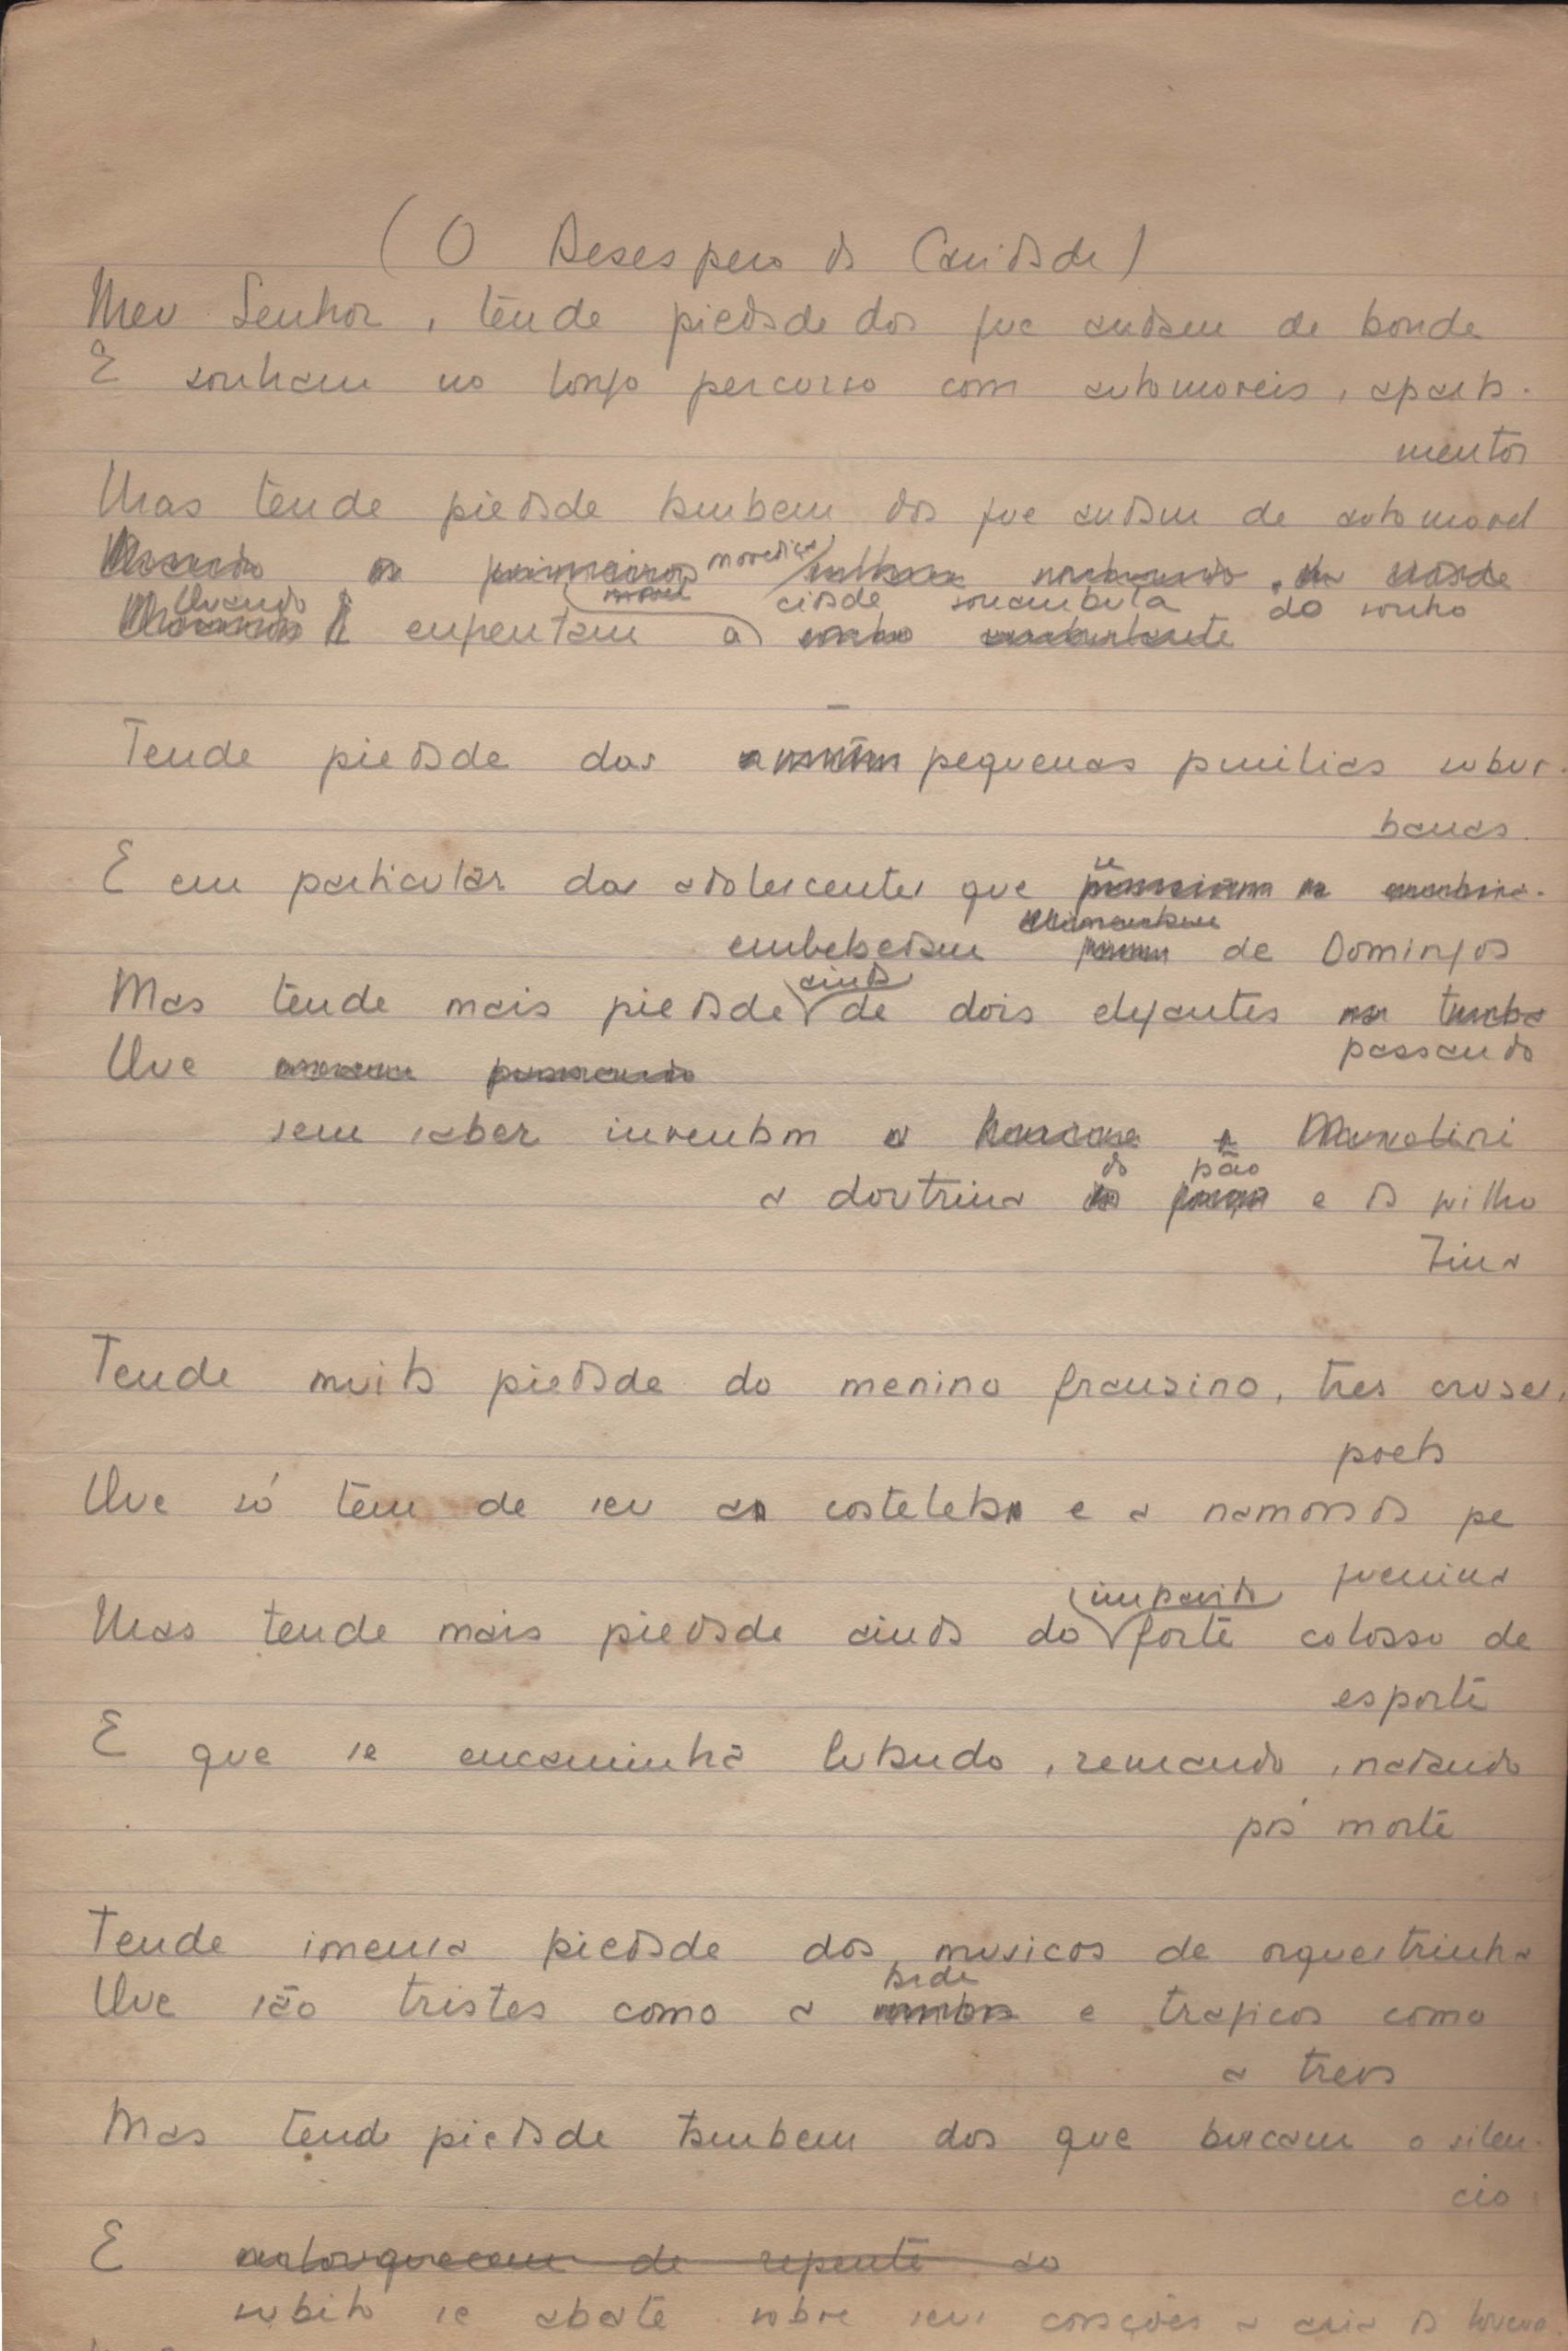 (O Desespero da Caridade)
Meu Senhor, tende piedade dos que andam de bonde
E sonham no longo percurso com automoveis, aparta-
mentos
Mas tende piedade tambem dos que andam de automovel
movediça
Quando enfrentam a cidade sonambula do sonho
Tende piedade das pequenas familias subur-
banas.
E em particular dos adolescentes que se
embebedam de Domingos
Mas tende mais piedade ainda de dois elegantes
passando
Que
sem saber inventam
a doutrina do pão e da guilho
tina
Tende muita piedade do menino franzino, tres cruses,
poeta
Que só tem de seu a costeleta e a namorada pe
quenina
Mas tende mais piedade ainda do impavido forte colosso de
esporte
E que se encaminha lutando, remando, nadando
pra morte
Tende imensa piedade dos musicos de orquestrinha
Que são tristes como a tarde e tragicos como
a treva
Mas tend piedade tambem dos que buscam o silen-
cio
E enlouquecem de repente ao
subito se abate sobre seus corações a aria da